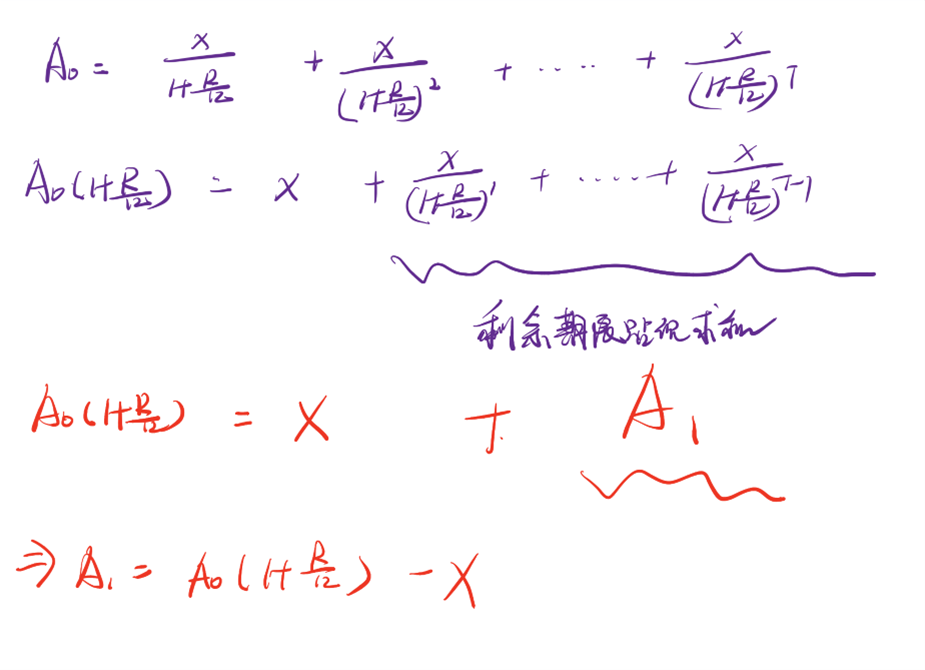 A₀ = x/(1+R/12) + x/(1+R/12)² + ‥‥ + x/(1+R/12)^T
A₀(1+R/12) = x + x/(1+R/12)¹ + ‥‥‥ + x/(1+R/12)^(T-1)
剩余期限贴现求和
A₀(1+R/12) = X + A₁
⇒ A₁ = A₀(1+R/12) - X